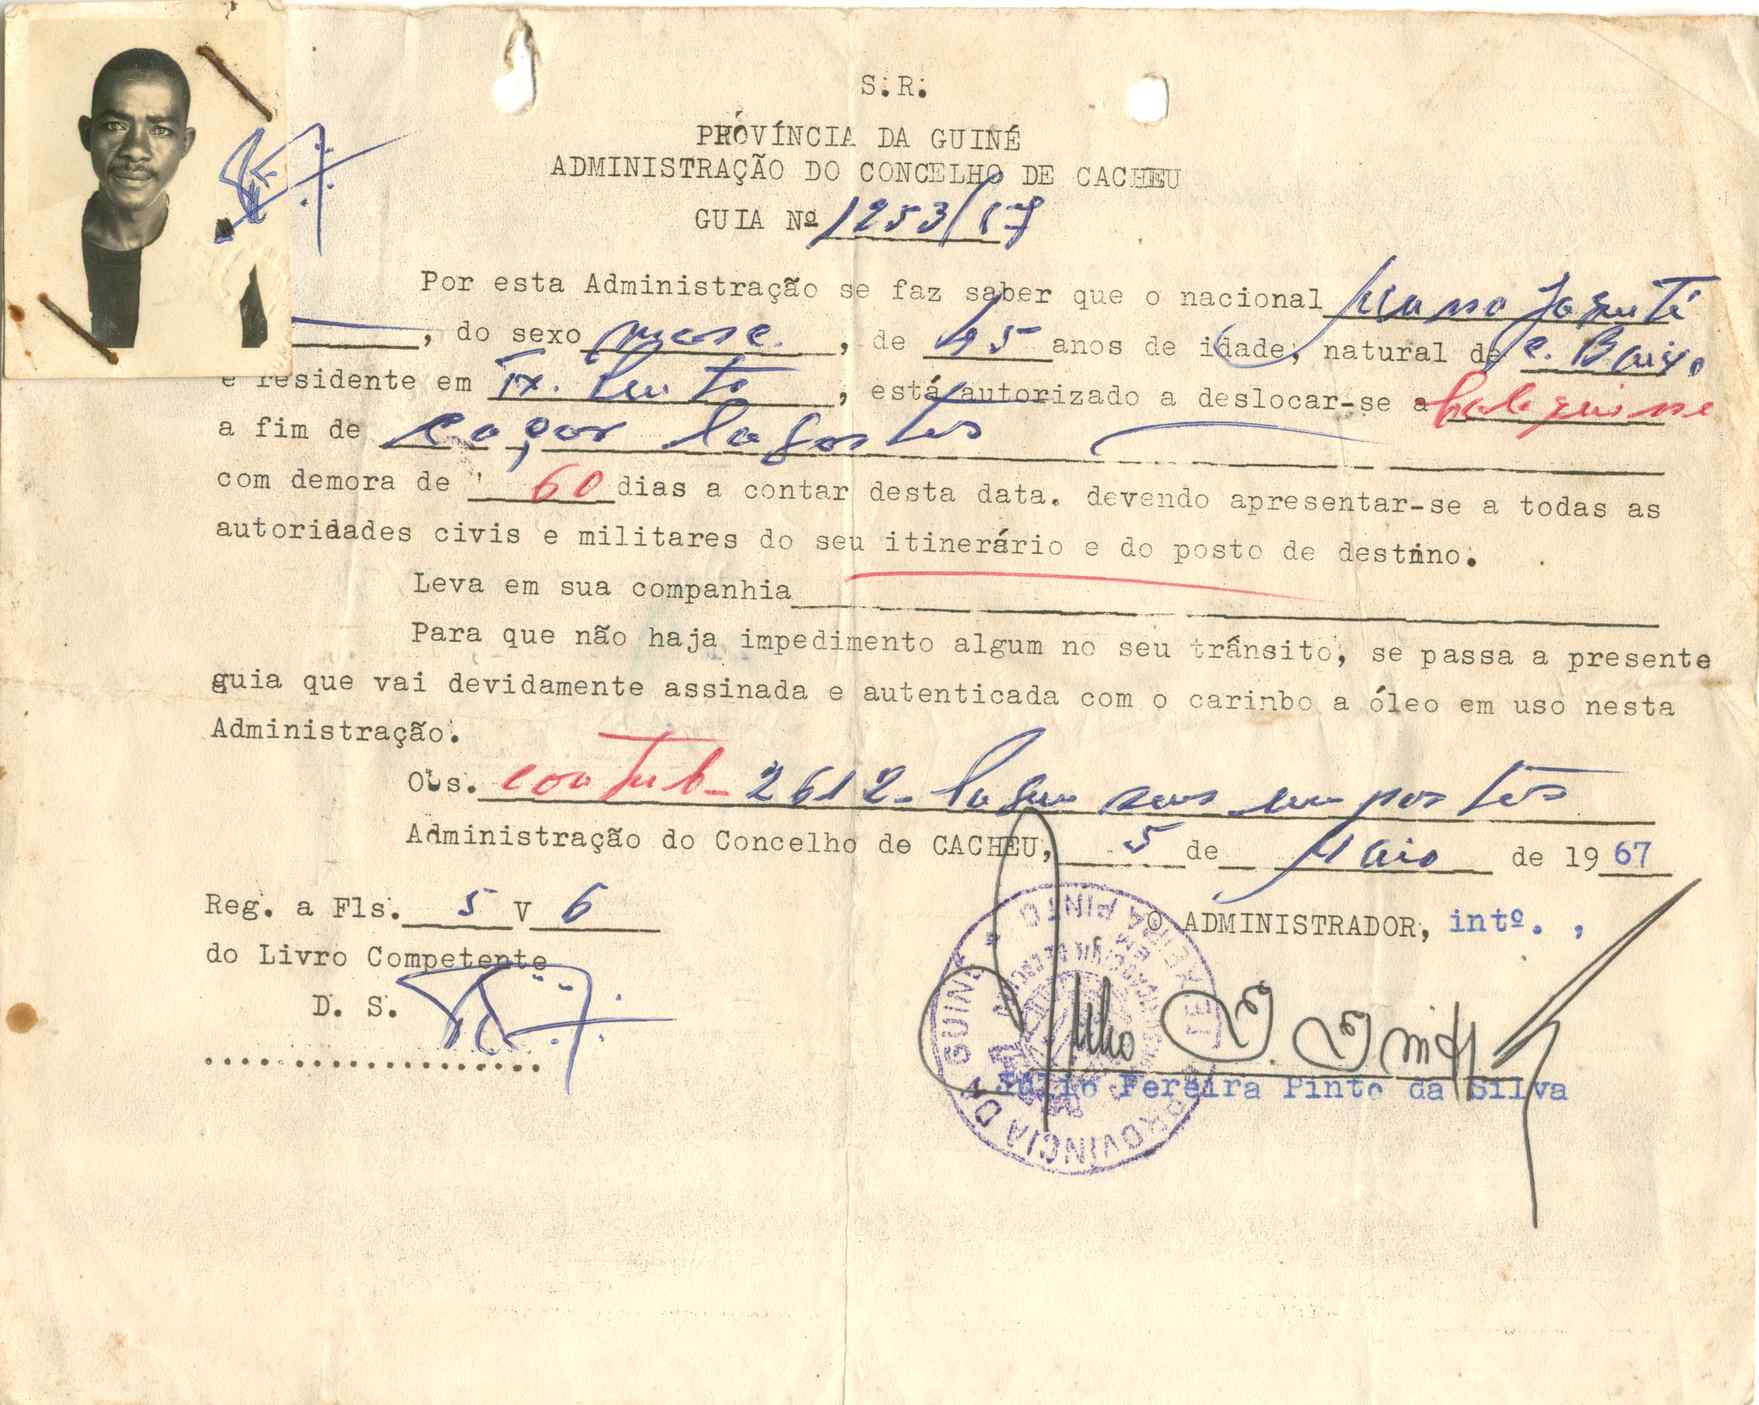 S. R.
PRÓVÍNCIA DA GUINÉ
ADMINISTRAÇÃO DO CONCELHO DE CACHEU
GUIA Nº 1253/67
Por esta Administração se faz saber que o nacional
, do sexo masc. , de 45 anos de idade, natural de C. Baixo
e residente em , está autorizado a deslocar-se a
a fim de caçar lagartos
com demora de 60 dias a contar desta data. devendo apresentar-se a todas as
autoridades civis e militares do seu itinerário e do posto de destino.
Leva em sua companhia
Para que não haja impedimento algum no seu trânsito, se passa a presente
guia que vai devidamente assinada e autenticada com o carinbo a óleo em uso nesta
Administração.
Obs. 2612 -
Administração do Concelho de CACHEU, 5 de Maio de 1967
Reg. a Fls. 5 V 6
do Livro Competente
O ADMINISTRADOR, intº. ,
D. S.
Júlio Pereira Pinto da Silva
PROVÍNCIA DA GUINÉ
TEIXEIRA PINTO